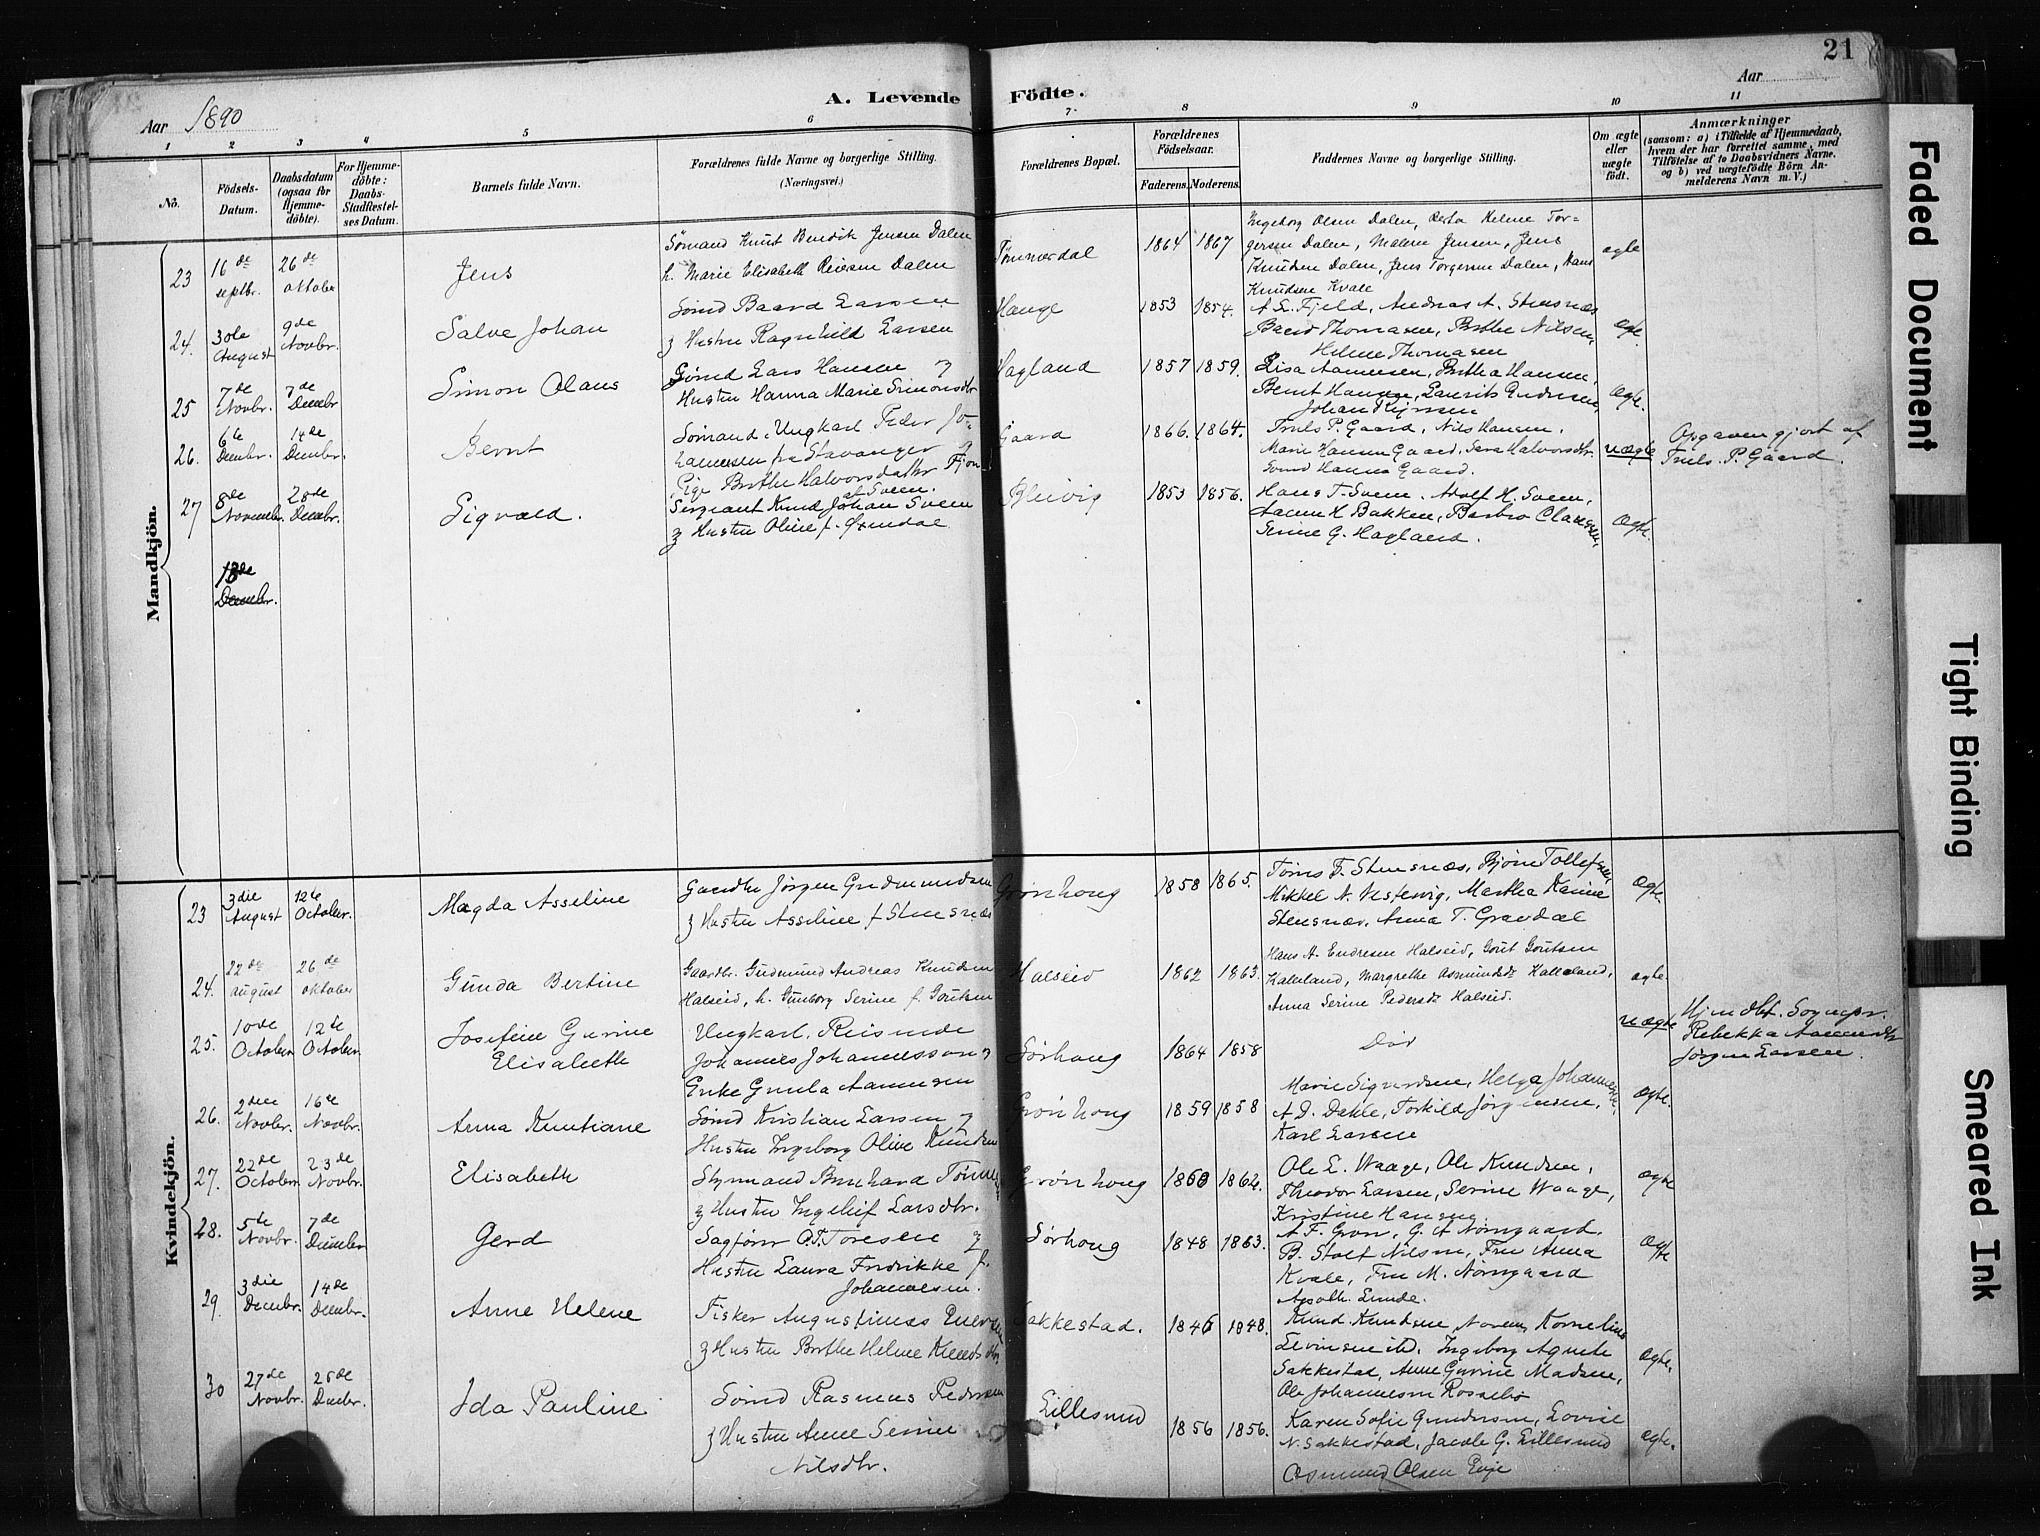 21
Aar 1890
A. Levende Födte.
Aar
1 2 3 4 5 6 7. 8 9 10 11
No.
Födsels-Datum.
Daabsdatum (ogsaa for Hjemme-döbte).
For Hjemme-döbte: Daabs-Stadfæstel-ses Datum.
Barnets fulde Navn.
Forældrenes fulde Navne og borgerlige Stilling. (Næringsvei.)
Forældrenes Bopæl.
Forældrenes Födselsaar.
Faderens. Moderens.
Faddernes Navne og borgerlige Stilling.
Om ægte eller uægte födt.
Anmærkninger
(saasom: a) i Tilfælde af Hjemmedaab, hvem der har forrettet samme, med Tilföielse af to Daabsvidners Navne, og b) ved uægtefödte Börn An-melderens Navn m. V.)
Mandkjön.
23 16de septbr. 26de oktober Jens
Sömand Knut Bendik Jensen Dalen
h. Marie Elisabeth Reiersen Dalen
Tömmerdal 1864 1867
Ingeborg Olsen Dalen, Berta Helene Tor=
gersen Dalen, Malene Jensen, Jens
Knudsen Dalen, Jens Torgersen Dalen, Hans
Knudsen Kvale
ægte
24. 30te August 9de Novbr. Salve Johan
Sömd Baard Larsen
og Hustru Ragnhild Larsen
Hauge 1853 1854.
A. L. Fjeld, Andreas A. Stensnæs
Baard Thomasen, Berthe Nilsen,
Helene Thomasen
ægte
25 7de Novbr. 7de Decembr Simon Olaus
Sömd Lars Hansen og
Hustru Hanna Marie Simonsdtr
Hagland 1857 1859.
Lisa Aamensen, Bertha Hansen,
Bernt Hansen, Laurits Gudersen,
Johan
ægte.
26. 6te Decembr. 14de Decembr. Bernt
Sömand, Ungkarl Peder Jo=
hannessen fra Stavanger og
Pige Berthe Halvorsdatter Fjon
Gaard 1866. 1864.
Truls P. Gaard, Nils Hansen,
Marie Hansen Gaard, Sara Halvorsdtr.
Svend Hansen Gaard.
uægte
Opgaven gjort af
Truls. P. Gaard.
27 8de Novembr. 28de Decbr. Sigvald.
Sergeant Knud Johan Sveen
og Hustru Oline f.
Bleivig 1853 1856.
Hans T. Sveen. Adolf H. Sveen,
H. Bakken, Barbro Clausen,
Serine G. Hagland.
ægte.
13de
Decembr.
Kvindekjön.
23 3die August 12te October. Magda Asseline
Gaardbr Jörgen Gudmundsen
og Hustru Asseline f Stensnæs
Grönhoug 1858 1865.
Töms F. Stensnæs, Björn Tollefsen,
Mikkel N. Vestevig, Martha Karine
Stensnæs, Anna T. Gravdal
ægte
24. 22de august 26de oktober Gunda Bertine
Gaardbr. Gudmund Andreas Knudsen
Halseid, h. Gunborg Serine f. Goutsen
Halseid 1862 1863.
Hans A. Endresen Halseid, Gout Goutsen
Kalleland, Margrethe Asmundsdtr Kalleland,
Anna Serine Pedersdtr Halseid.
ægte.
25. 10de October 12te October. Josefine Gurine
Elisabeth
Ungkarl, Reisende
Johannes Johannesson og
Enke Gunla Aamensen
Sörhoug 1864 1858
Död
uægte
Hjemdbt. Sognepr.
Rebekka
Jörgen Larsen.
26. 2den Novbr. 16de Novbr. Anna Knutiane
Sömd Kristian Larsen og
Hustru Ingeborg Oline Knudsen
Grönhoug 1859 1858
Marie Sigurdsen, Helga Johannesen
A. D. Dahle, Torkild Jörgensen,
Karl Larsen
ægte.
27. 22de October 23de Novbr. Elisabeth
Styrmand Bernhard
og Hustru Ingeleif Larsdtr.
Grönhoug 1860 1864.
Ole L. Waage, Ole Knudsen,
Theodor Larsen, Serine Waage,
Kristine Hansen
ægte
28. 5te Novbr. 7de December Gerd
Sagförer O. T. Toresen og
Hustru Laura Fredrikke f.
Johannesen.
Sörhoug 1848 1863.
A. F. Gron, G. A Nörregaard.
B. Stolt Nilsen, Fru Anna
Kvale, Fru M. Nörregaard
Apoth. Lunde.
ægte
29. 3die Decembr. 14de Decembr. Anne Helene
Fisker Augustinus
og Hustru Berthe Helene Knudsdtr
Sakkestad. 1846 1848.
Knud Knudsen Kornelius
Ingeborg Agnete
Sakkestad, Anne Gurine Madsen,
Ole Johannesen Rossebö
ægte.
30 27de Novbr. 26de Decbr. Ida Pauline
Sömd Rasmus Pedersen
og Hustru Anne Serine
Nilsdtr.
Lillesund 1856 1856.
Karen Sofie Gundersen, Lovise
N. Sakkestad, Jacob G. Lillesund
Osmund Olsen Eeje
ægte.
Faded Document
Tight Binding
Smeared Ink